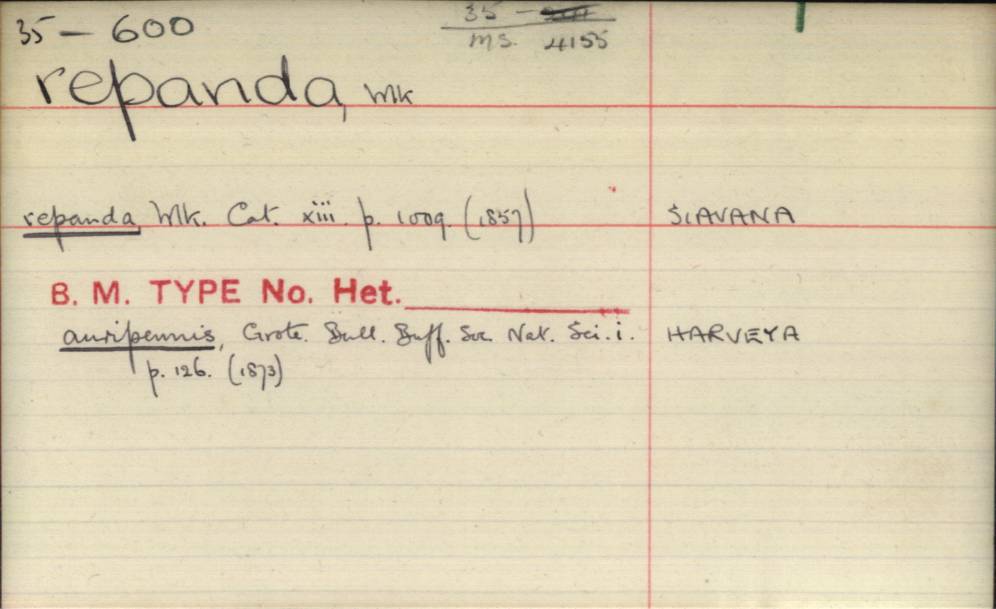 35 — 600
35 —
MS. 4155
repanda, Wlk
repanda Wlk. Cat. xiii. p. 1009. (1857) SIAVANA
B. M. TYPE No. Het.
auripennis, Grote. Bull. Buff. Soc. Nat. Sci. i. HARVEYA
p. 126. (1873)